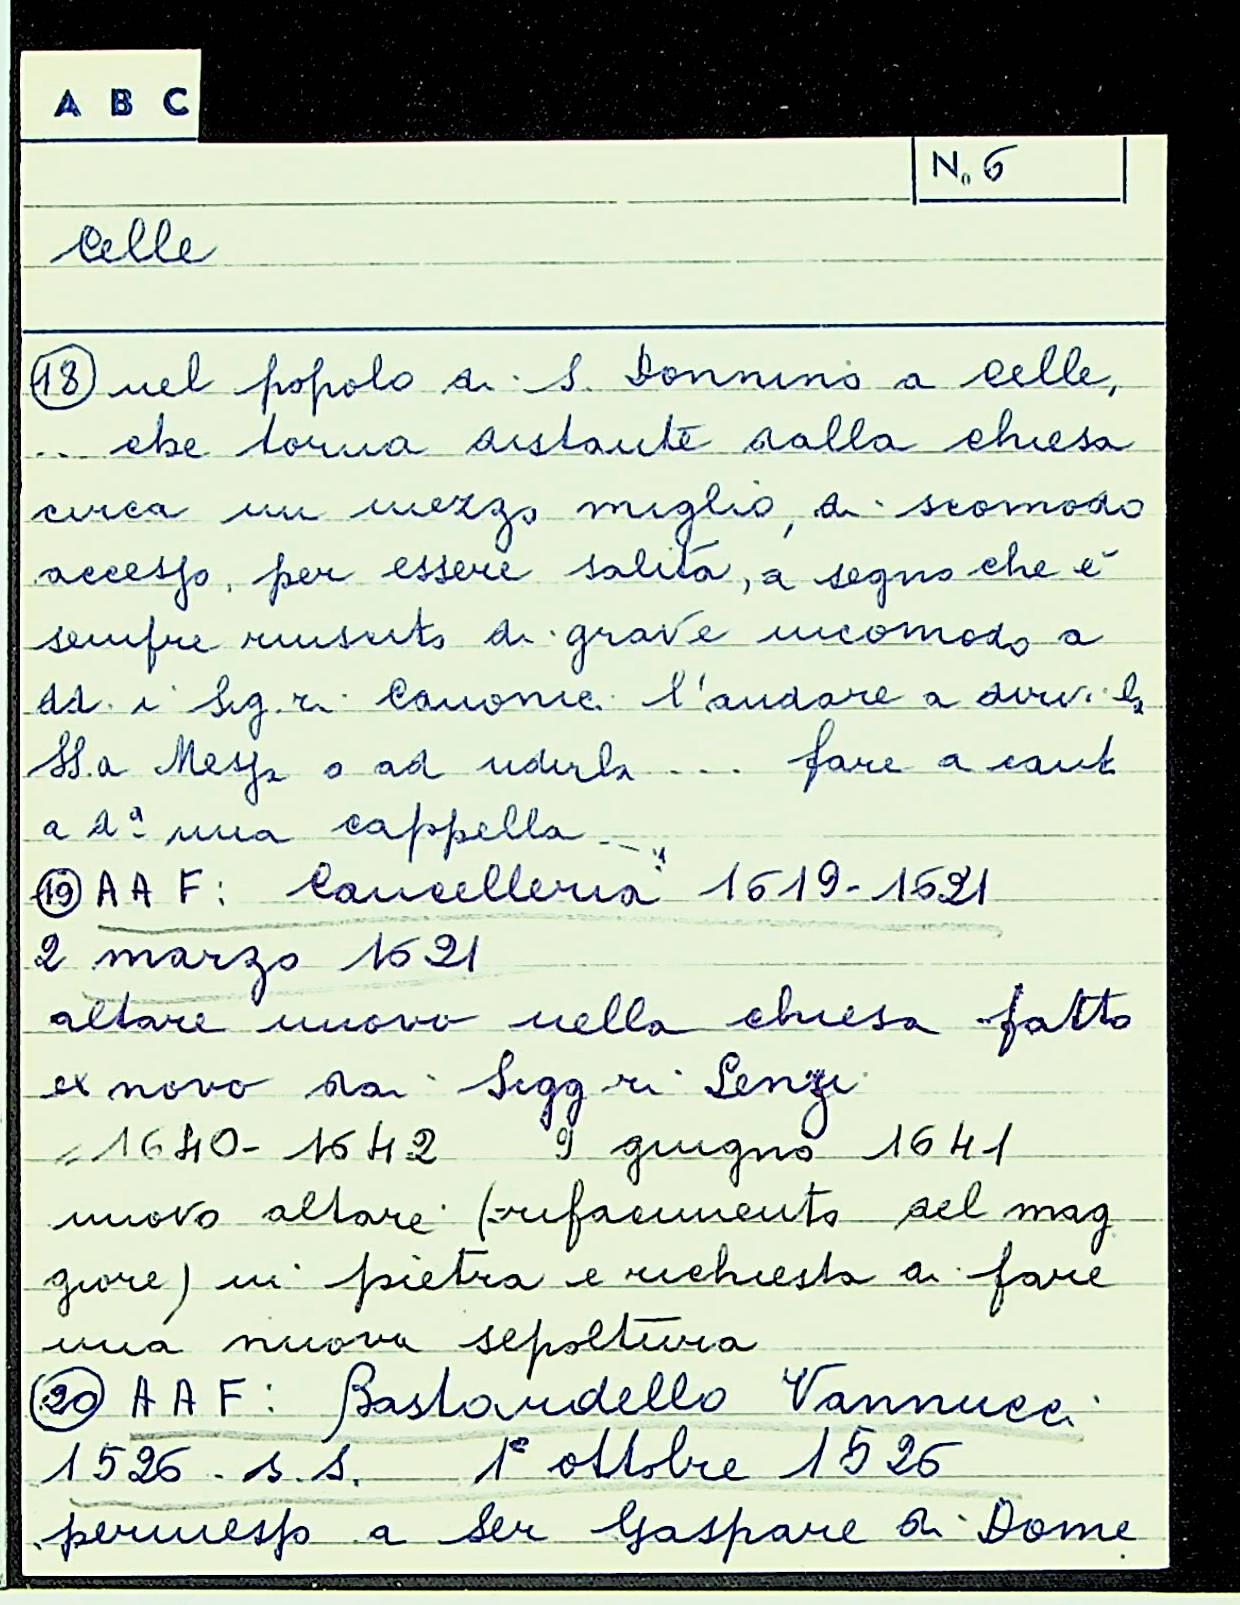 A B C
N. 6
Celle
18 nel popolo di S. Donnino a Celle,
... che torna distante dalla chiesa
circa un mezzo miglio, di scomodo
accesso, per essere salita, a segno che è
sempre riuscito di grave incomodo a
dd. i Sig.ri Canonici l'andare a dirvi la
SS.a Messa o ad udirla .... fare a cant
a dª una cappella ...
19 A A F: Cancelleria 1619-1621
2 marzo 1621
altare nuovo nella chiesa fatto
ex novo dai Sigg ri Lenzi
" 1640-1642 9 giugno 1641
nuovo altare (=rifacimento del mag
giore) in pietra e richiesta di fare
una nuova sepoltura
20 A A F: Bastardello Vannucci
1526 . s. s. 1° ottobre 1526
permesso a Ser Gaspare di Dome